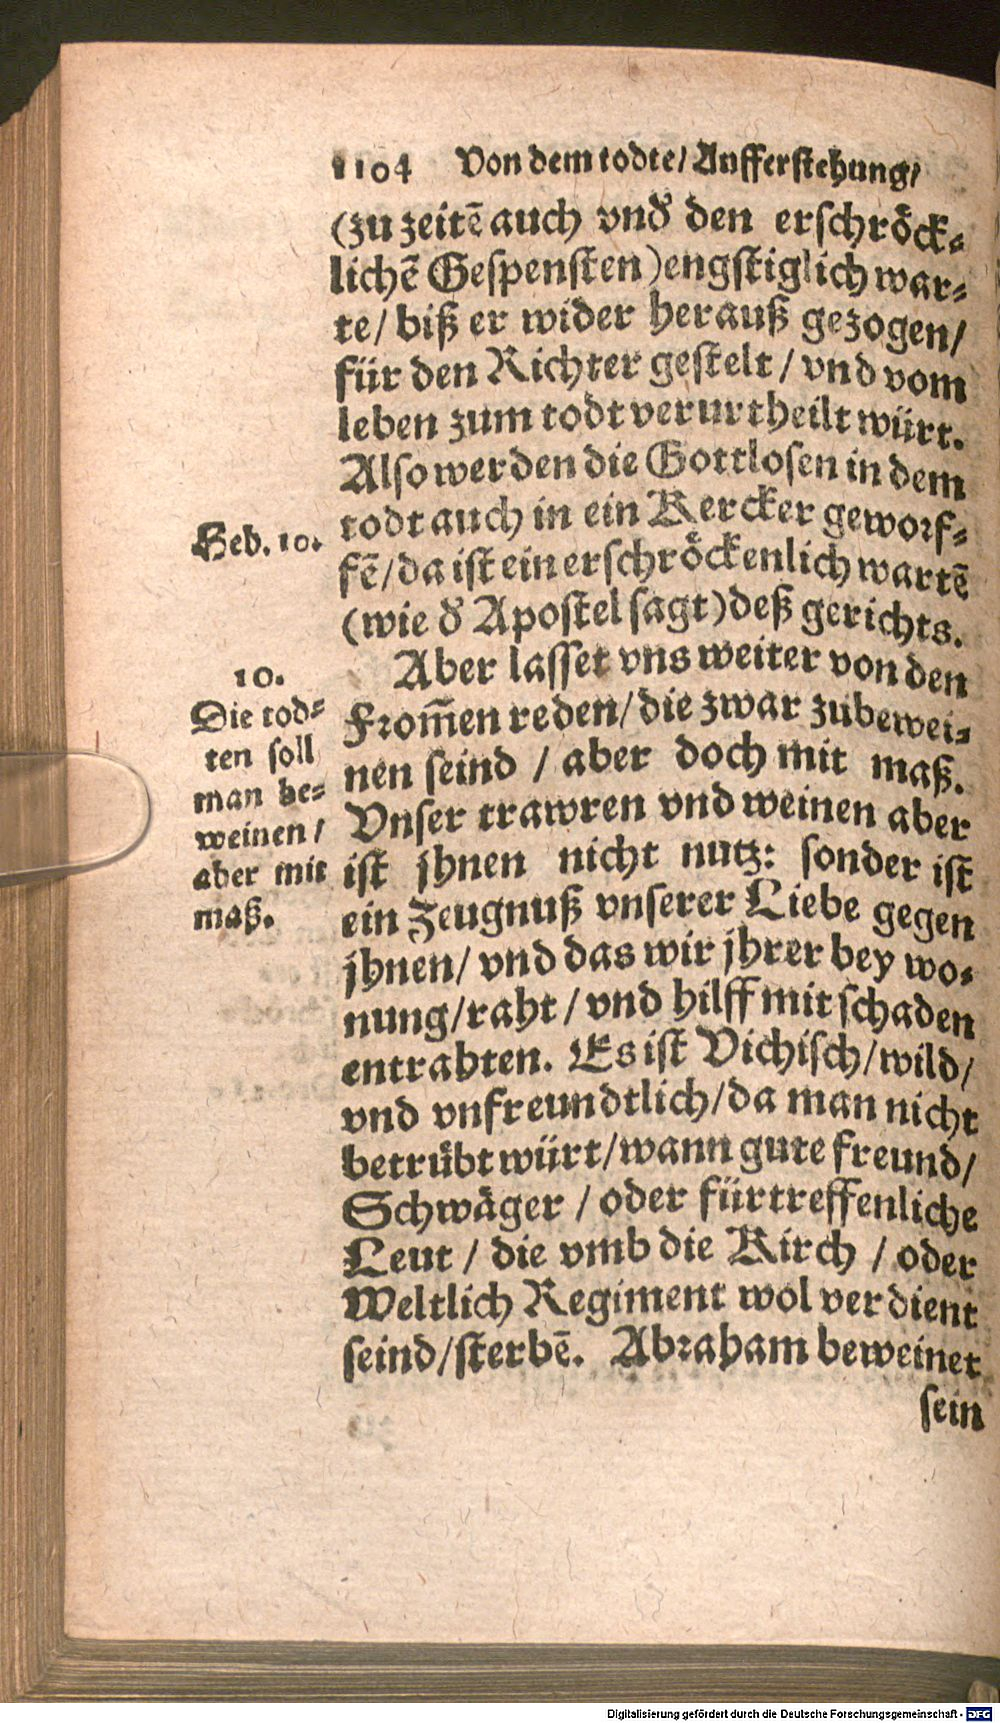 1104 Von dem todte/ Aufferstehung/
(zu zeitē auch vnd̕ den erschroͤck⸗
lichē Gespensten) engstiglich war⸗
te/ biß er wider herauß gezogen/
für den Richter gestelt / vnd vom
leben zum todt verurtheilt würt.
Also werden die Gottlosen in dem
todt auch in ein Kercker geworf⸗
fē/ da ist ein erschroͤckenlich wartē
(wie d̕ Apostel sagt) deß gerichts.
Heb. 10.
Aber lasset vns weiter von den
From̃en reden/ die zwar zubewei⸗
nen seind / aber doch mit maß.
Vnser trawren vnd weinen aber
ist jhnen nicht nutz: sonder ist
ein Zeugnuß vnserer Liebe gegen
jhnen/ vnd das wir jhrer bey wo⸗
nung/ raht / vnd hilff mit schaden
entrahten. Es ist Vichisch/ wild/
vnd vnfreundtlich/ da man nicht
betruͤbt würt/ wann gute freund/
Schwaͤger / oder fürtreffenliche
Leut / die vmb die Kirch / oder
Weltlich Regiment wol verdient
seind/ sterbē. Abraham beweinet
sein
10.
Die tod⸗
ten soll
man be⸗
weinen /
aber mit
maß.
Digitalisierung gefördert durch die Deutsche Forschungsgemeinschaft - DFG